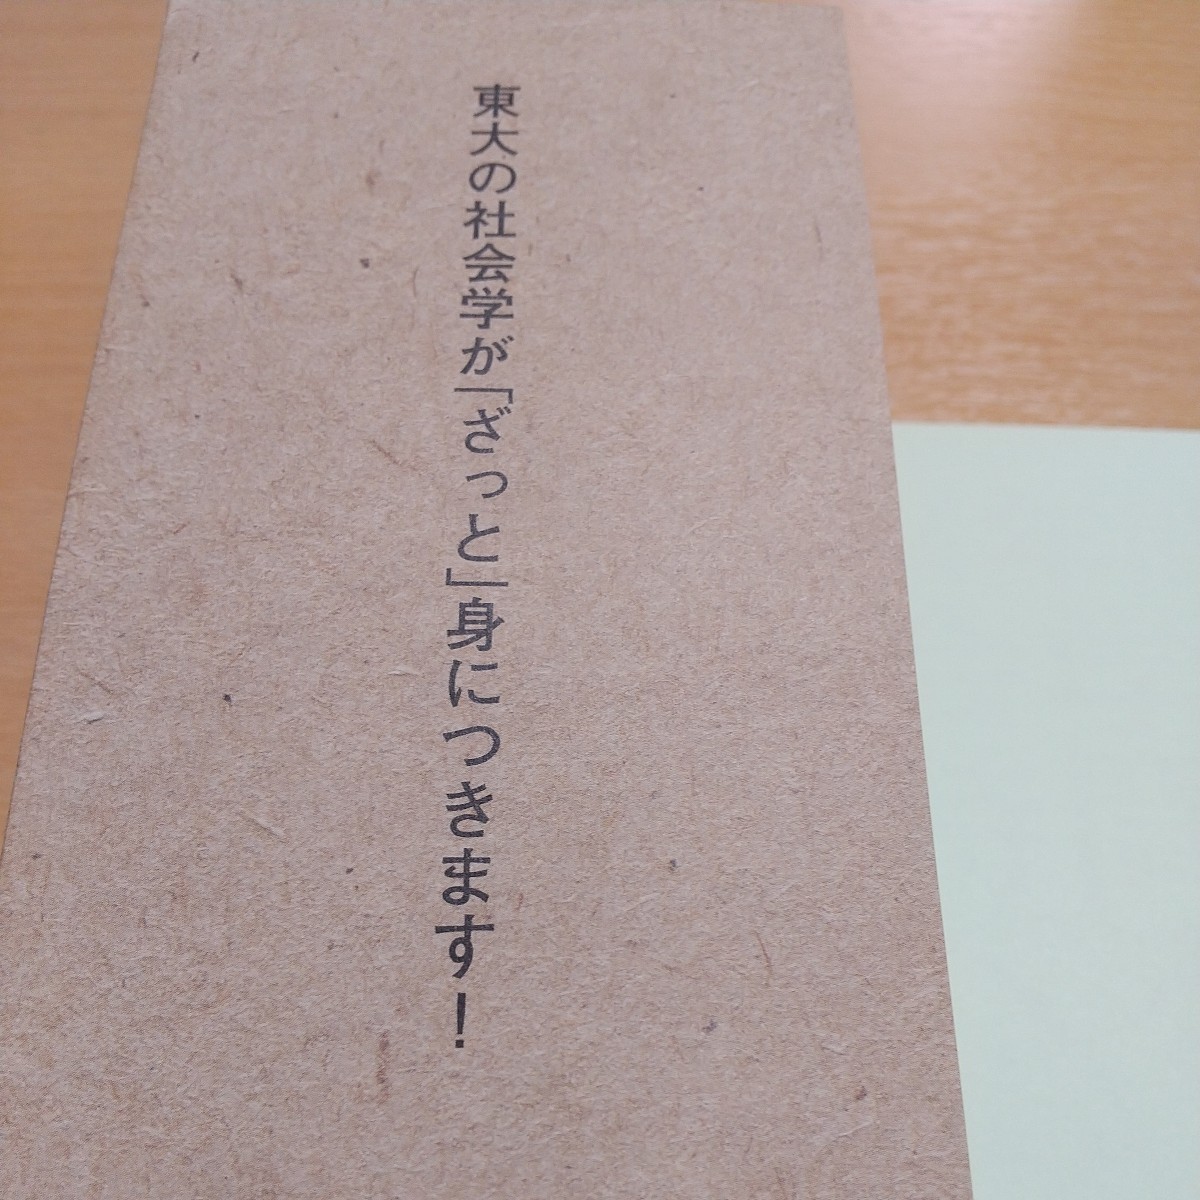 東大の社会学が「ざっと」身につきます！